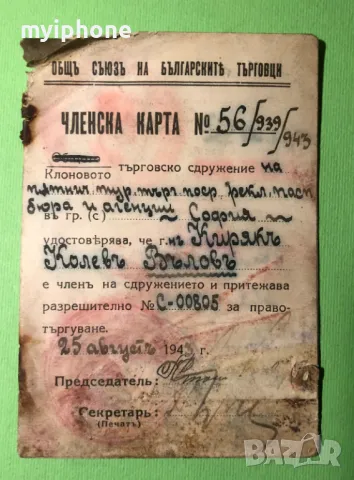 myiphone
ОБЩЪ СЪЮЗЪ НА БЪЛГАРСКИТѢ ТЪРГОВЦИ
ЧЛЕНСКА КАРТА № 56/939/943
Клоновото търговско сдружение на
пѫтнич. тур. търг. поср. рекл. пасп.
бюра и агенции
въ гр. (с) София
удостовѣрява, че г. нъ Кирякъ
Колевъ Въловъ
е членъ на сдружението и притежава
разрешително № С-00805 за право-
търгуване.
25 августъ 1943 г.
Председатель:
Секретарь:
(Печатъ)
BAZAR